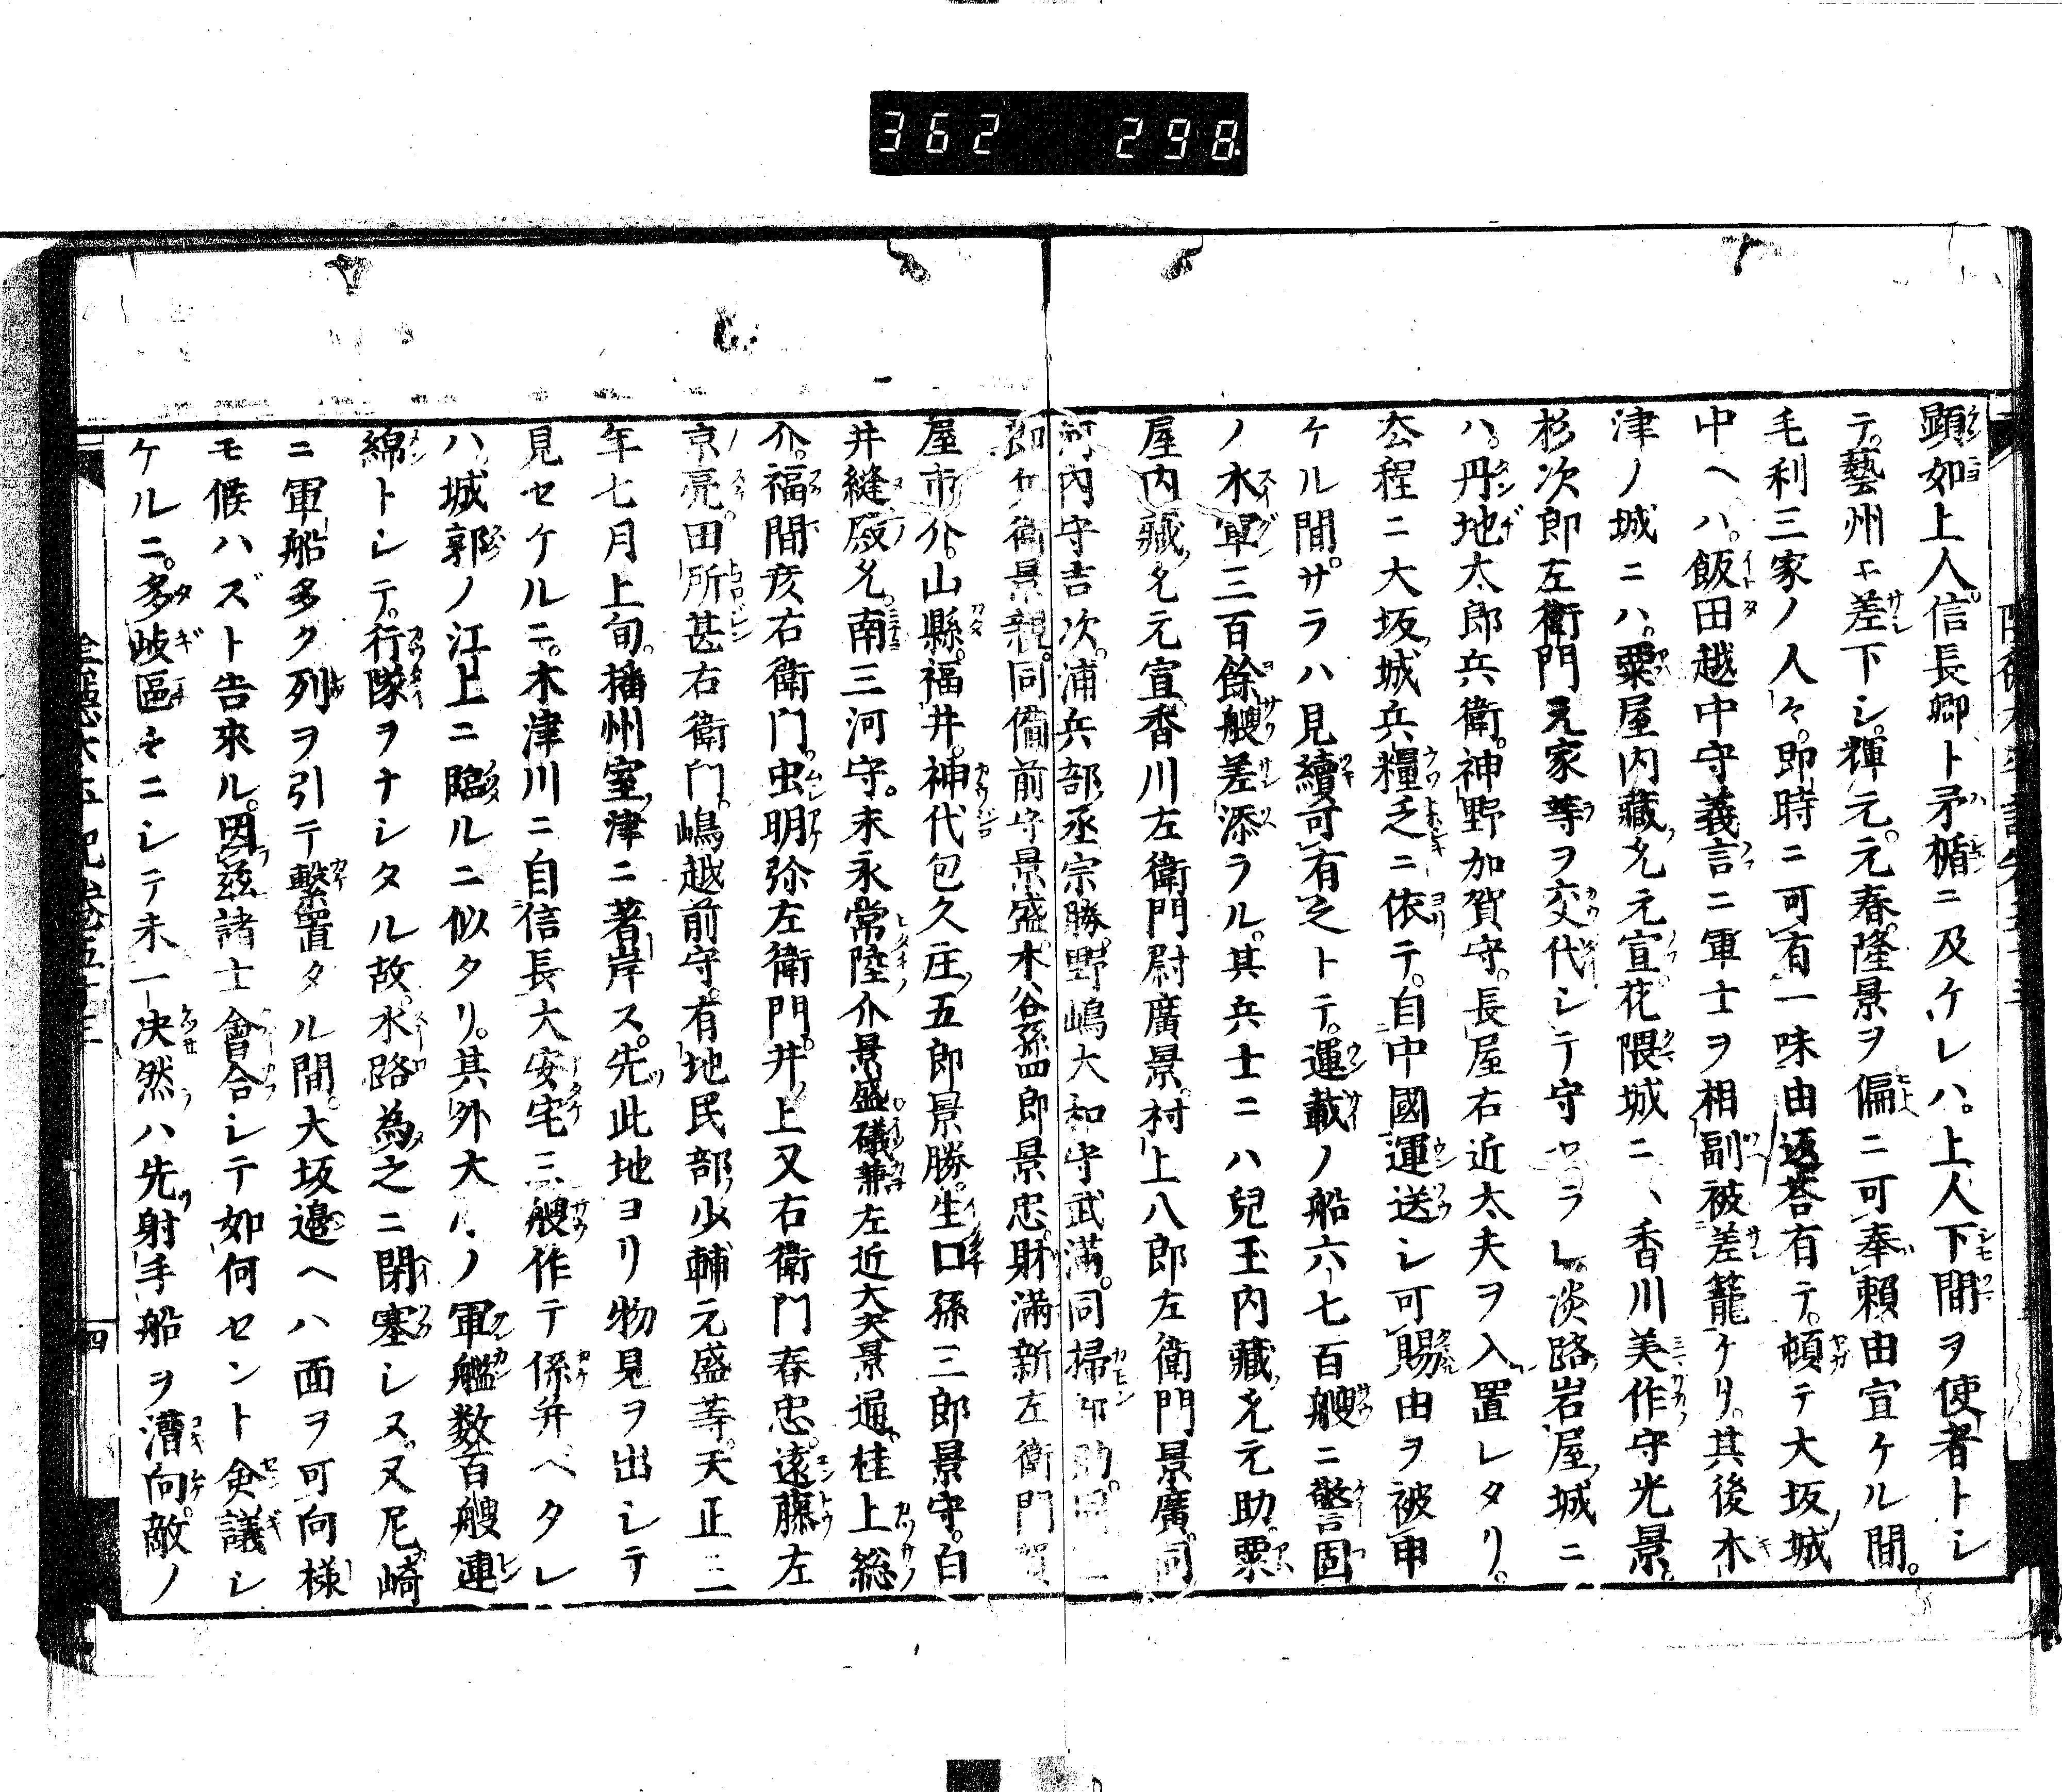 362 298.
顕如上人。信長卿ト矛楯ニ及ケレハ。上人下間ヲ使者トシ
テ。藝州エ差下シ。輝元。元春。隆景ヲ偏ニ可奉頼由宣ケル間。
毛利三家ノ人々。即時ニ可有一味由返荅有テ。頓テ大坂城
中ヘハ。飯田越中守義言ニ軍士ヲ相副被差籠ケリ。其後木
津ノ城ニハ。粟屋内藏允元宣。花隈城ニハ香川美作守光景。
杉次郎左衛門元家等ヲ交代シテ守セラレ。淡路岩屋城ニ
ハ。丹地太郎兵衛。神野加賀守。長屋右近太夫ヲ入置レタリ。
厺程ニ大坂城兵糧乏ニ依テ。自中國運送シ可賜由ヲ被申
ケル間。サラハ見續可有之トテ。運載ノ船六七百艘ニ警固
ノ水軍三百餘艘差添ラル。其兵士ニハ兒玉内藏允元助。粟
屋内藏允元宣。香川左衛門尉廣景。村上八郎左衛門景廣。同
河内守吉次。浦兵部丞宗勝。野嶋大和守武満。同掃部助。同
郎兵衛景親。同備前守景盛。木谷孫四郎景忠。財満新左衛門賀
屋市介。山縣。福井。神代包久庄五郎景勝。生口孫三郎景守。白
井縫殿允。南三河守。末永常陸介景盛礒兼左近大夫景通桂上総
介。福間彦右衛門。虫明弥左衛門。井上又右衛門春忠。遠藤左
京亮。田所甚右衛門。嶋越前守。有地民部少輔元盛等。天正三
年七月上旬。播州室津ニ著岸ス。先此地ヨリ物見ヲ出シテ
見セケルニ。木津川ニ自信長大安宅三艘作テ係并ベタレ
ハ。城郭ノ江上ニ臨ルニ似タリ。其外大ハノ軍艦数百艘連
綿トシテ。行隊ヲナシタル故。水路為之ニ閉塞シヌ。又尼崎
ニ軍船多ク列ヲ引テ繋置タル間。大坂邊ヘハ面ヲ可向様
モ候ハズト告來ル。因茲諸士會合シテ如何セント僉議シ
ケルニ。多岐區々ニシテ未一决然ハ先射手船ヲ漕向。敵ノ
四